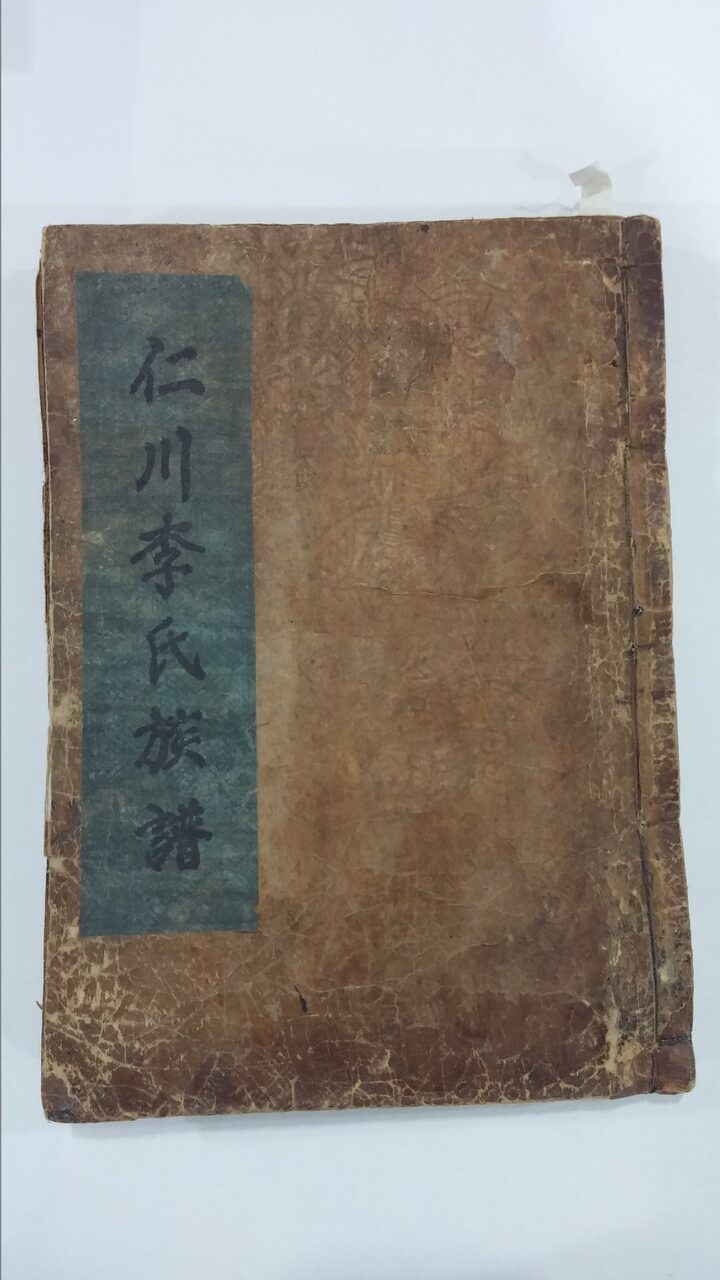 仁川李氏族譜